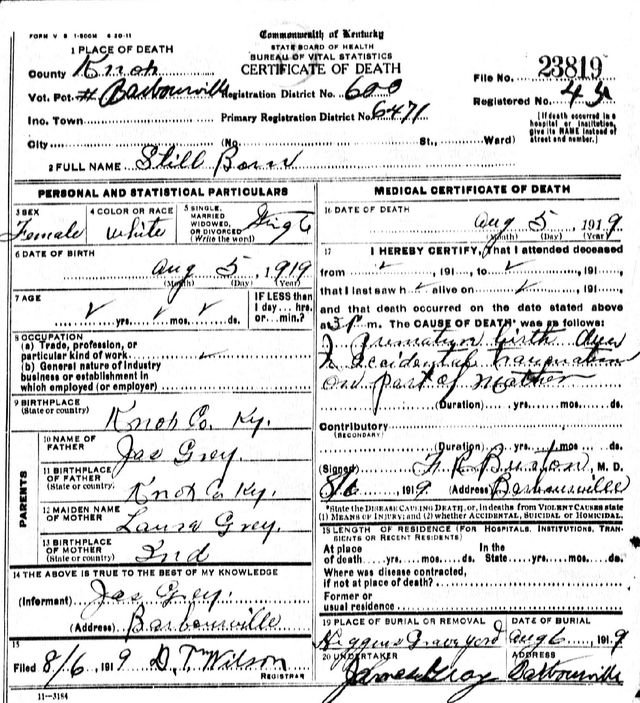 FORM V S 1-500M 6 20-11
Commonwealth of Kentucky
STATE BOARD OF HEALTH
BUREAU OF VITAL STATISTICS
CERTIFICATE OF DEATH
1 PLACE OF DEATH
County Knox
Vot. Pct. # Barbourville Registration District No. 600
Ino. Town Primary Registration District No. 6471
City (No. St., Ward)
File No. 23819
Registered No.
[If death occurred in a hospital or institution, give its NAME instead of street and number.]
2 FULL NAME Still Born
PERSONAL AND STATISTICAL PARTICULARS
3 SEX
Female
4 COLOR OR RACE
White
5 SINGLE, MARRIED WIDOWED, OR DIVORCED (Write the word)
6 DATE OF BIRTH
Aug 5, 1919
(Month) (Day) (Year)
7 AGE
yrs. mos. ds.
IF LESS than 1 day... hrs. or... min.?
8 OCCUPATION
(a) Trade, profession, or
particular kind of work
(b) General nature of industry
business or establishment in
which employed (or employer)
9 BIRTHPLACE
(State or country)
Knox Co. Ky.
PARENTS
10 NAME OF FATHER
Jas Grey.
11 BIRTHPLACE OF FATHER
(State or country)
Knox Co Ky.
12 MAIDEN NAME OF MOTHER
Laura Grey.
13 BIRTHPLACE OF MOTHER
(State or country)
Ind
14 THE ABOVE IS TRUE TO THE BEST OF MY KNOWLEDGE
(Informant) Jas Grey.
(Address) Barbourville
15
Filed 8/6, 1919 D. T. Wilson
REGISTRAR
11-3184
MEDICAL CERTIFICATE OF DEATH
16 DATE OF DEATH
Aug 5, 1919
(Month) (Day) (Year)
17 I HEREBY CERTIFY, That I attended deceased
from , 191..., to , 191...,
that I last saw h alive on , 191...,
and that death occurred on the date stated above
at 3 P m. The CAUSE OF DEATH* was as follows:
Premature birth due
to accidental
on part of mother
(Duration) yrs. mos. ds.
Contributory
(SECONDARY)
(Duration) yrs. mos. ds.
(Signed) Burton, M. D.
8/6, 1919. (Address) Barbourville
*State the DISEASE CAUSING DEATH, or, in deaths from VIOLENT CAUSES state
(1) MEANS OF INJURY; and (2) whether ACCIDENTAL, SUICIDAL or HOMICIDAL.
18 LENGTH OF RESIDENCE (FOR HOSPITALS, INSTITUTIONS, TRANSIENTS OR RECENT RESIDENTS)
At place of death yrs. mos. ds. In the State yrs. mos. ds.
Where was disease contracted,
if not at place of death?
Former or
usual residence
19 PLACE OF BURIAL OR REMOVAL
Graveyard
DATE OF BURIAL
Aug 6, 1919
20 UNDERTAKER
James Gray
ADDRESS
Barbourville